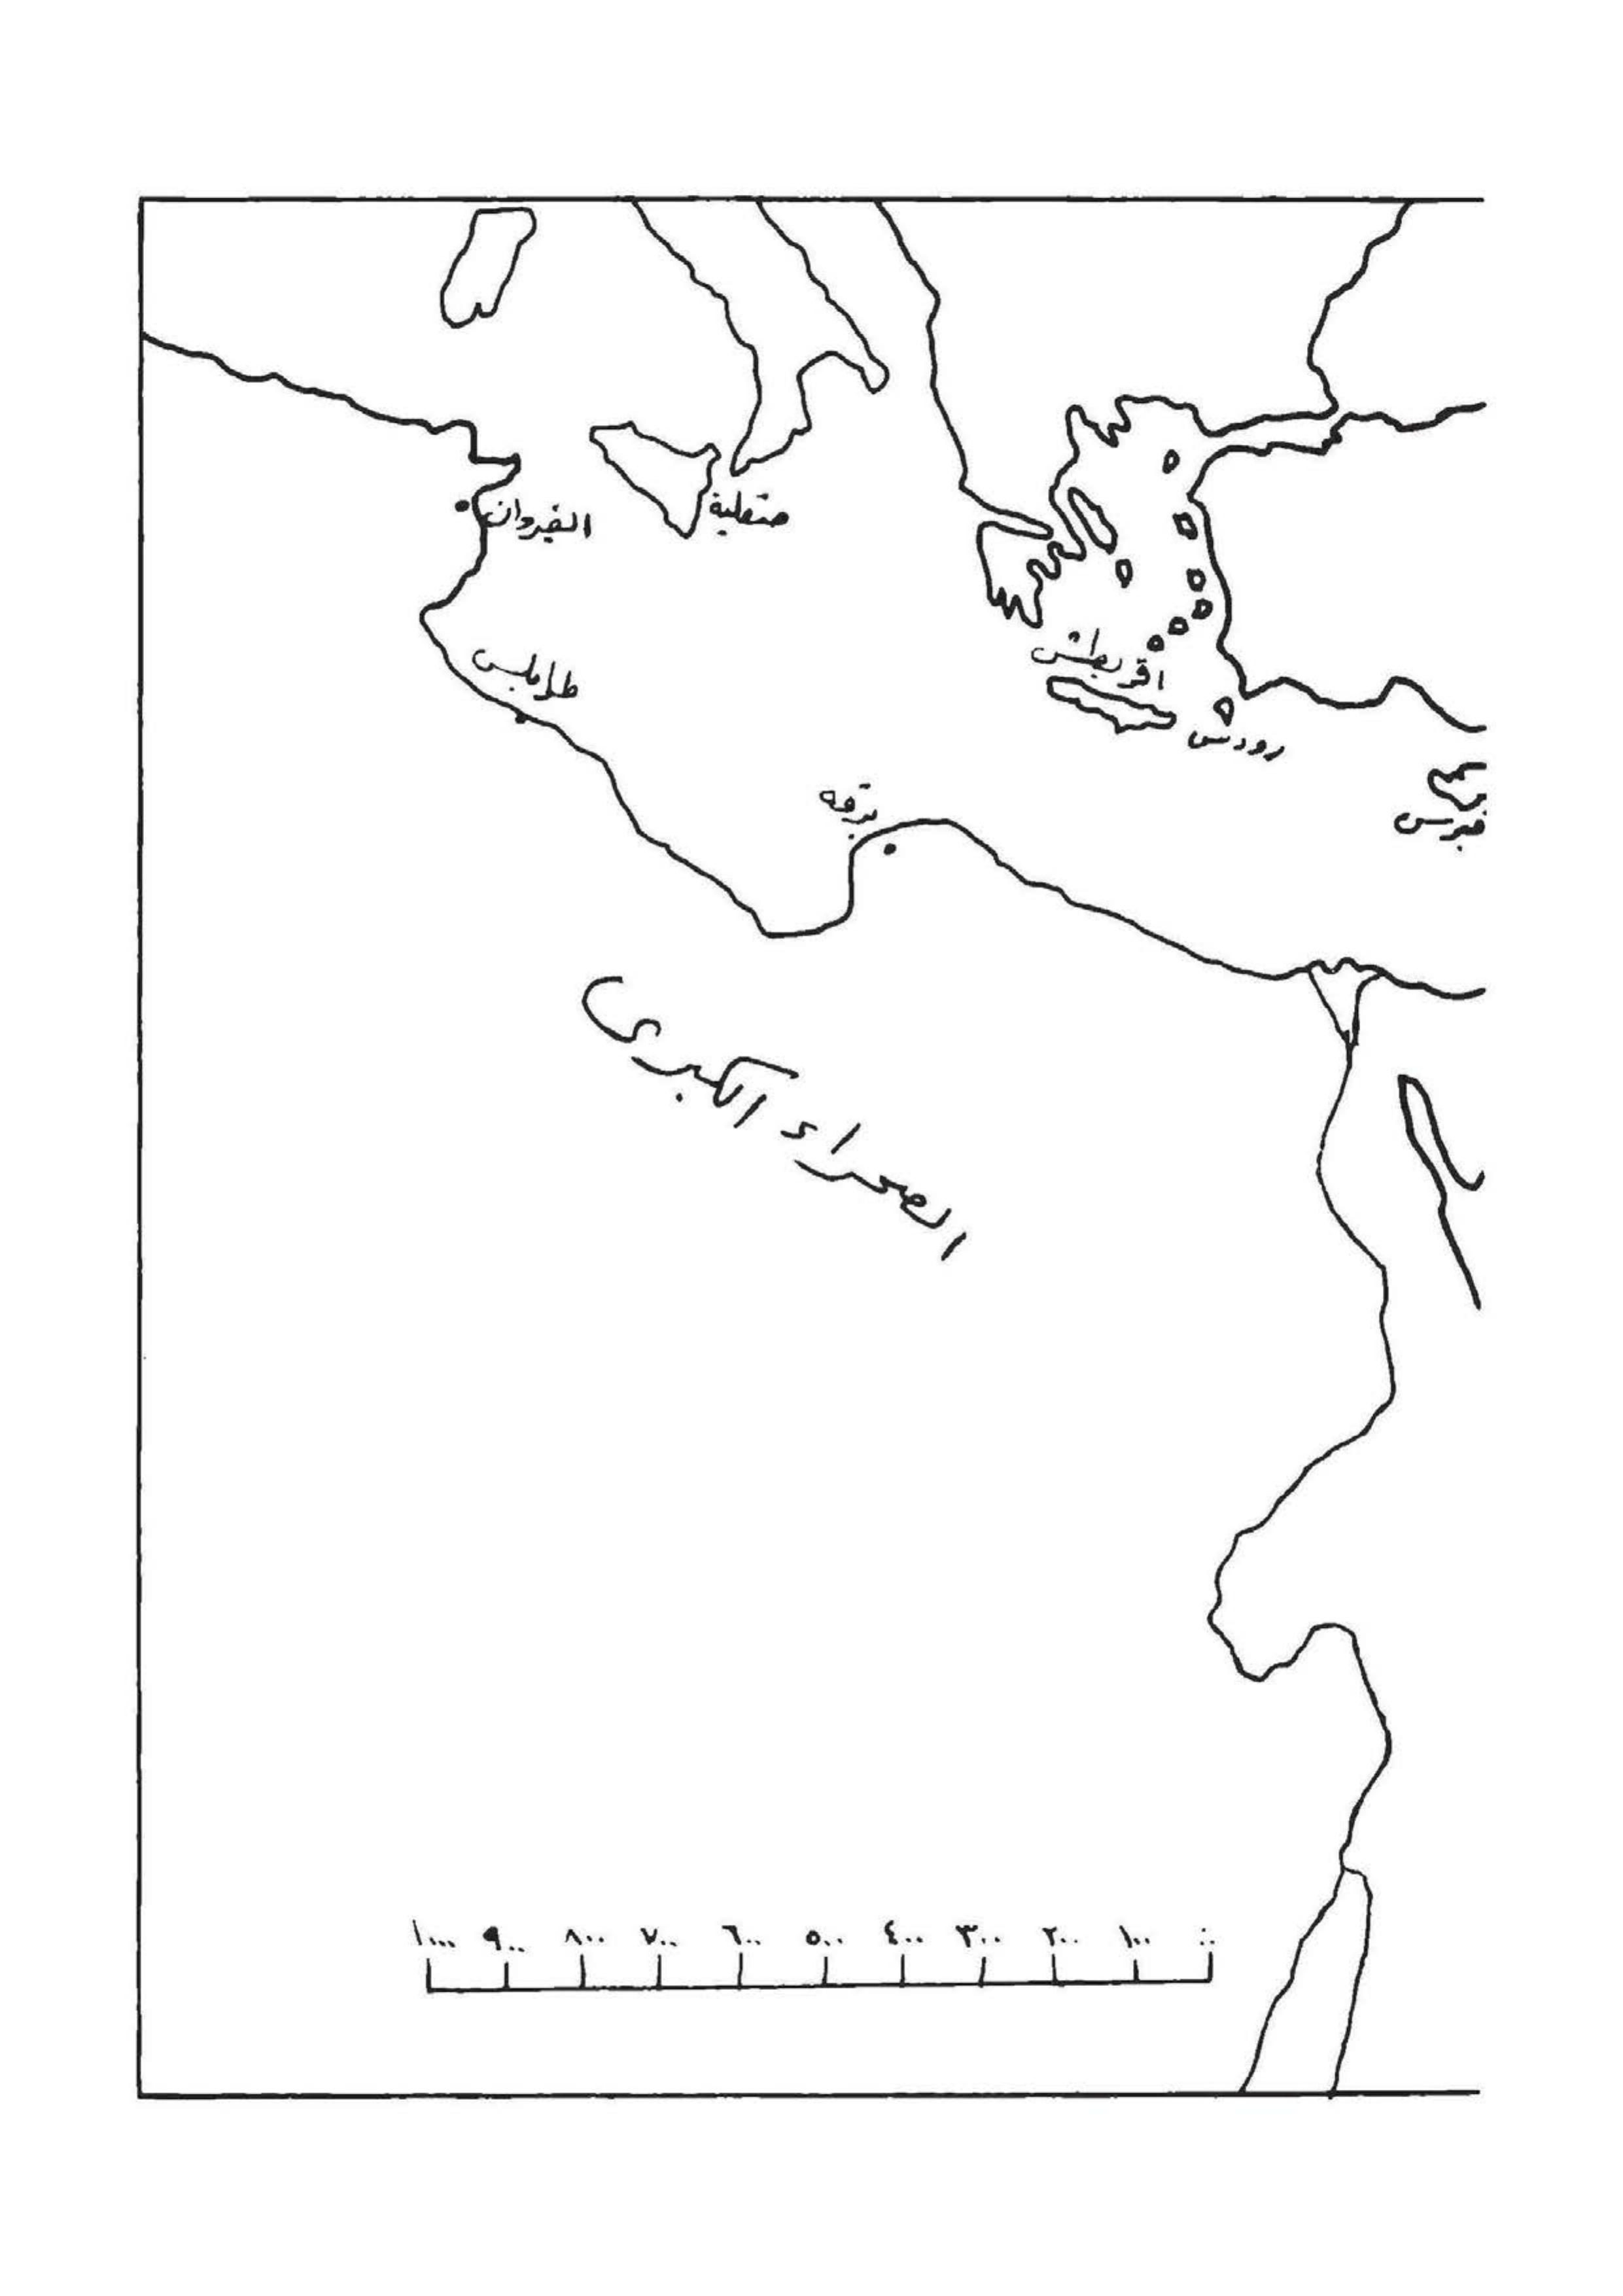 صقلية
القيروان
طرابلس
اقريطش
رودس
برقه
قبرس
الصحراء الكبرى
١٠٠٠ ٩٠٠ ٨٠٠ ٧٠٠ ٦٠٠ ٥٠٠ ٤٠٠ ٣٠٠ ٢٠٠ ١٠٠ ٠٠